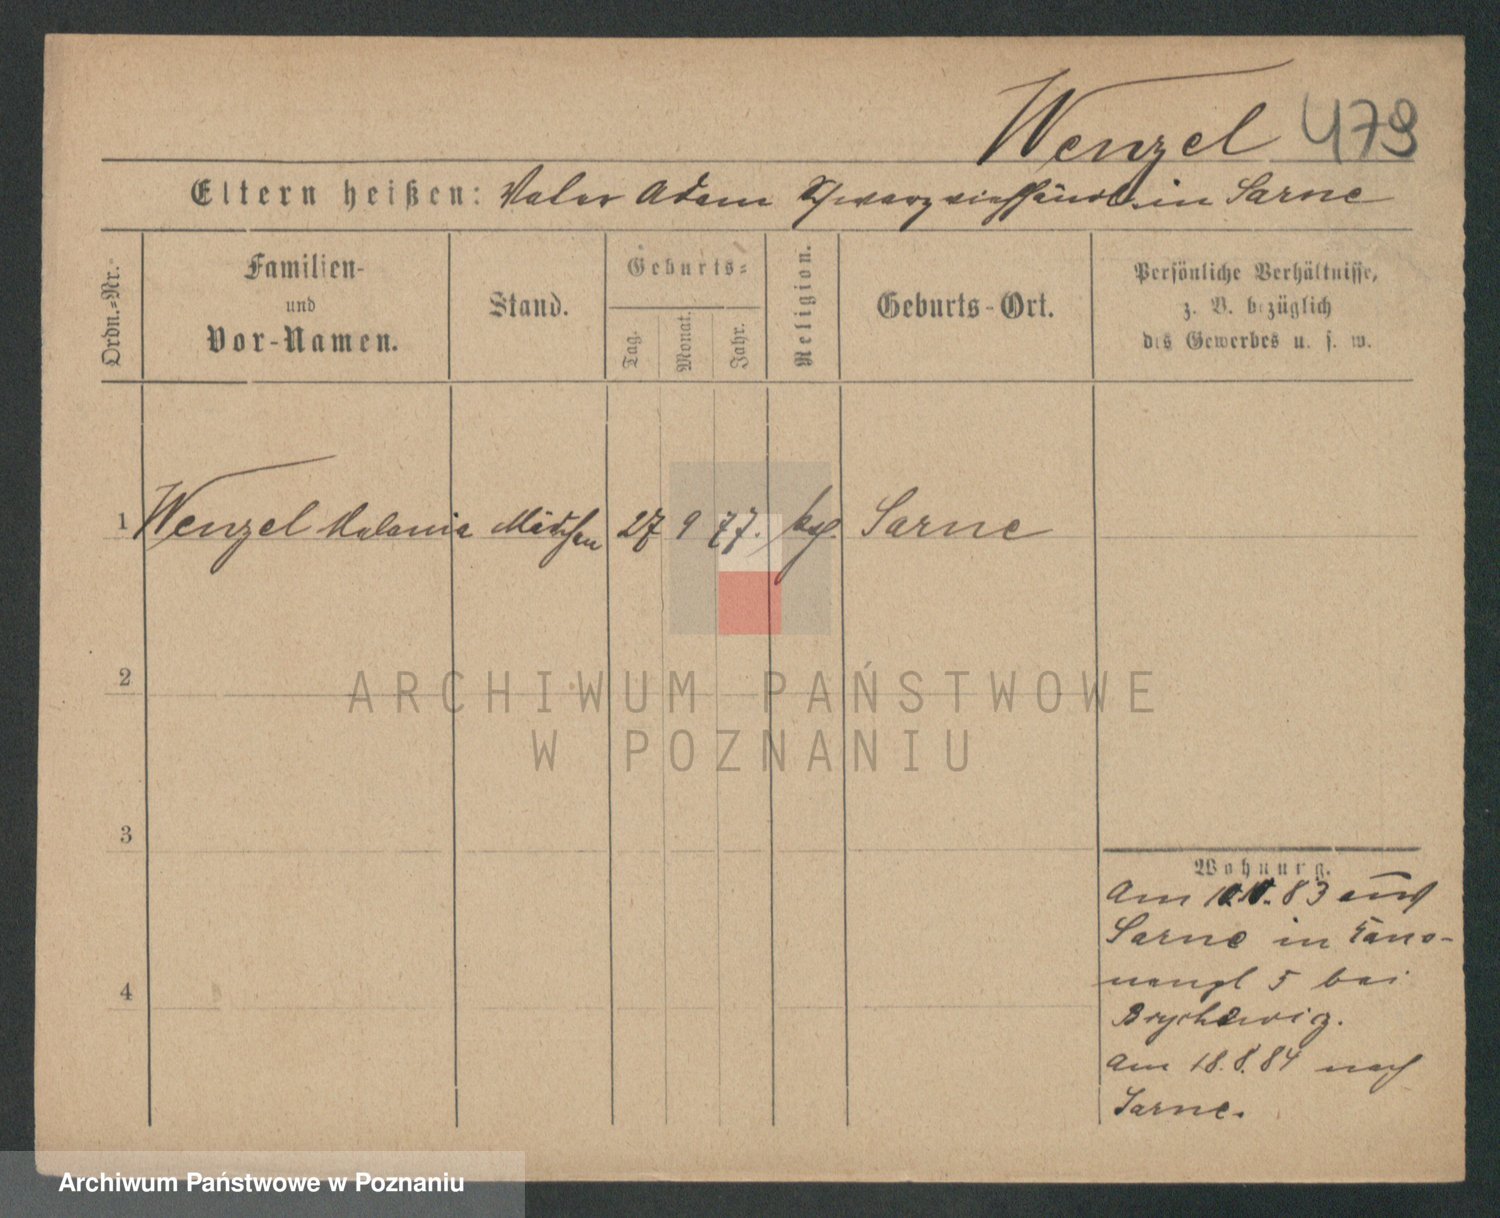 Wenzel 479
Eltern heißen: Vater Adam Schwarzviehhändl. in Sarne
Ordn.-Nr.
Familien-
und
Vor-Namen.
Stand.
Geburts-
Tag.
Monat.
Jahr.
Religion.
Geburts-Ort.
Persönliche Verhältnisse,
z. B. bezüglich
des Gewerbes u. s. w.
1 Wenzel Melania Mädchen 27 9 77. kath. Sarne
2
3
4
Wohnung.
Am 10. 83 aus
Sarne in
5 bei
am 18.8.84 nach
Sarne.
ARCHIWUM PAŃSTWOWE
W POZNANIU
Archiwum Państwowe w Poznaniu